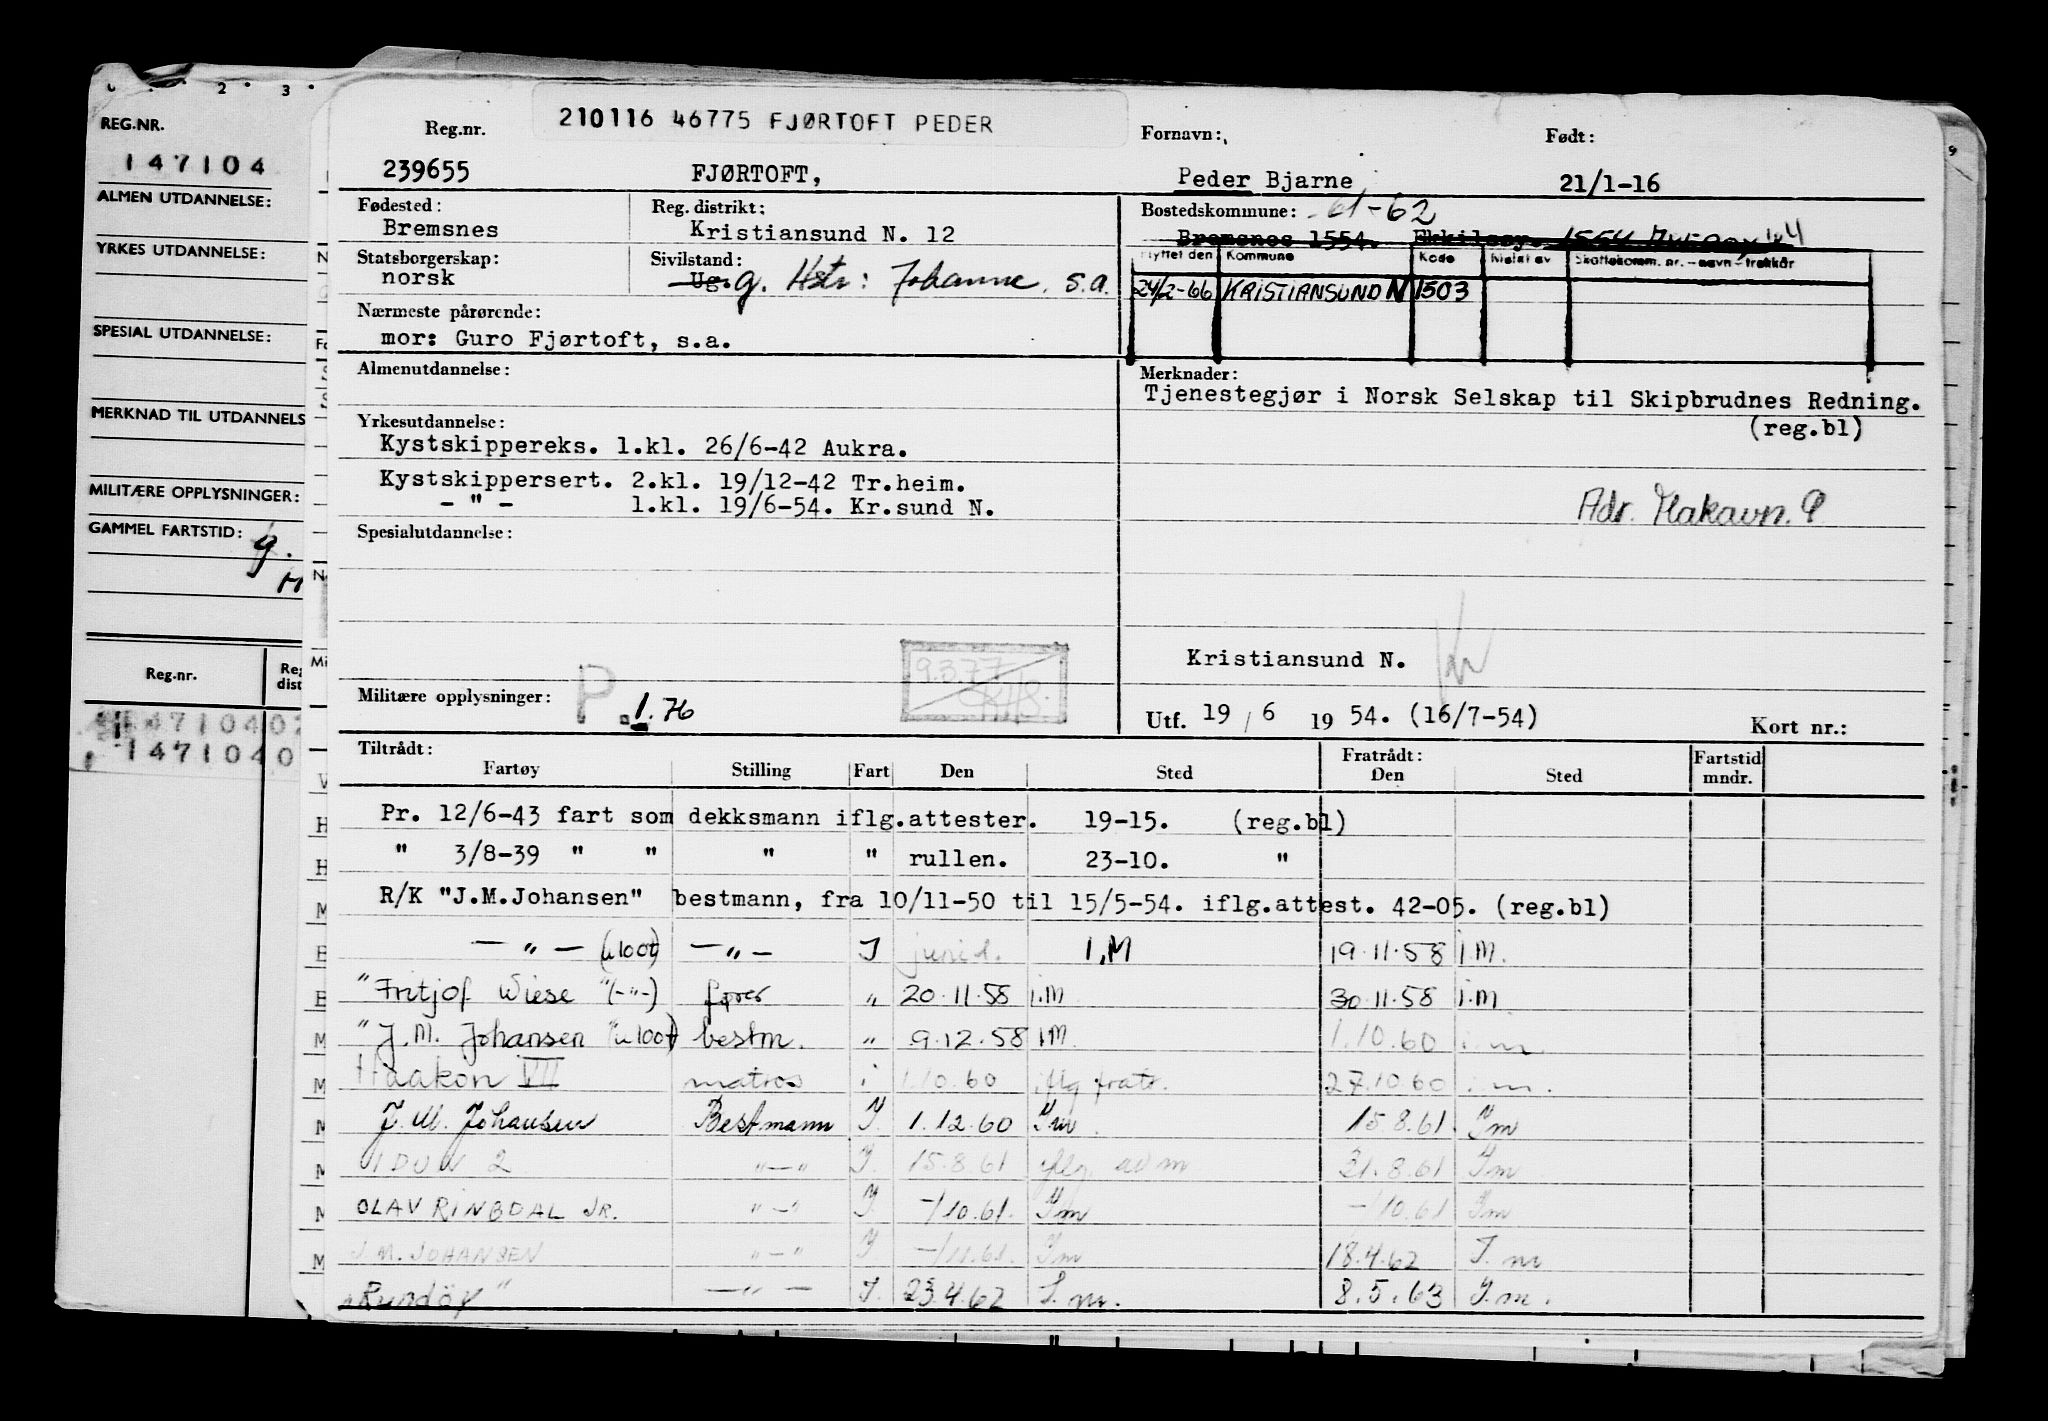 2 3
REG.NR.
147104
ALMEN UTDANNELSE:
YRKES UTDANNELSE:
SPESIAL UTDANNELSE:
MERKNAD TIL UTDANNELS
MILITÆRE OPPLYSNINGER:
GAMMEL FARTSTID: g.
Reg.nr. Reg dist
147104 0
147104 0
210116 46775 FJØRTOFT PEDER
Reg.nr. Fornavn: Født:
239655 FJØRTOFT, Peder Bjarne 21/1-16
Fødested: Reg. distrikt: Bostedskommune: 61-62
Bremsnes Kristiansund N. 12 Bremsnes 1554.
Statsborgerskap: Sivilstand: Flyttet den Kommune Kode Meldt av Skattekomm. nr. - navn - trekkår
norsk Ug. g. Hstr: Johanne, s.a. 24/2-66 KRISTIANSUND N 1503
Nærmeste pårørende:
mor: Guro Fjørtoft, s.a.
Almenutdannelse: Merknader:
Tjenestegjør i Norsk Selskap til Skipbrudnes Redning.
(reg.bl)
Yrkesutdannelse:
Kystskippereks. 1.kl. 26/6-42 Aukra.
Kystskippersert. 2.kl. 19/12-42 Tr.heim.
- " - 1.kl. 19/6-54. Kr.sund N.
Adr.
Spesialutdannelse:
Kristiansund N.
9.3.77
Militære opplysninger: P 1.76
Utf. 19 / 6 19 54. (16/7-54) Kort nr.:
Tiltrådt: Fratrådt: Fartstid
Fartøy Stilling Fart Den Sted Den Sted mndr.
Pr. 12/6-43 fart som dekksmann iflg.attester. 19-15. (reg.bl)
" 3/8-39 " " " " rullen. 23-10. "
R/K "J.M.Johansen" bestmann, fra 10/11-50 til 15/5-54. iflg.attest. 42-05. (reg.bl)
— " — (u100t) — " — I I.M 19.11.58 i.M.
"Fritjof Wiese "(-"-) fører " 20.11.58 i.M 30.11.58 i.M
"J.M. Johansen "(u100t) bestm. " 9.12.58 i.M 1.10.60 i.m.
Haakon VII matros i 1.10.60 iflg fratr. 27.10.60 i.m.
J.M. Johansen Bestmann I. 1.12.60 Im. 15.8.61 Im
IDUN 2 " — " I. 15.8.61 iflg. av m 31.8.61 Im
OLAV RINGDAL JR. " — " I. -/10.61. Im -/10.61 Im
J.M. JOHANSEN " — " I. -/11.61. Im 18.4.62 I.m
"Rundöy" — " — I. 23.4.62 I.m. 8.5.63 I.m.